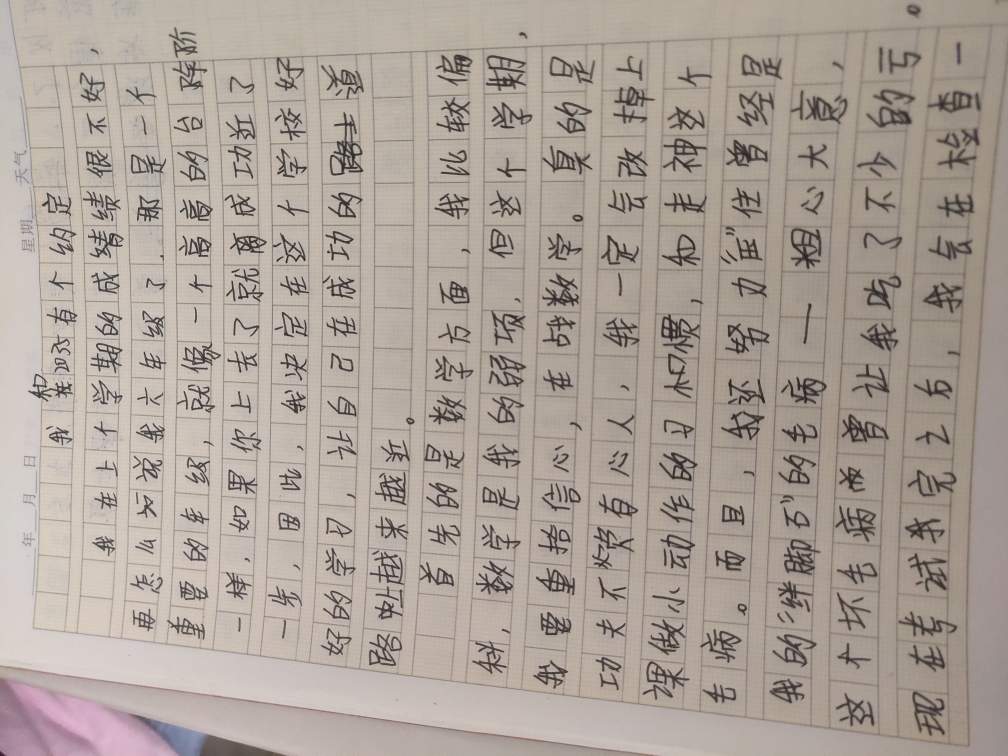 年 月 日 星期 天气
我和2035有个约定
我在上个学期的成绩绩很不好,
再怎么如说我六年级了.那是一个
重要的年级,就像一个高高的台阶
一样,如果你上去了就离成功近了
一步,因此,我决定在这个学校好
好的学习,让自己在成功的
路如越来越近。
首先的是数学方面,我比较偏
科,数学是我的弱项.但这个学期,
我要重拾信心,在战数学。真的是
功夫不负有心人,我一定会改掉上
课做小动作的习惯,和走神这个
毛病。而且,我还努力"缶"住曾经是
我的"绊脚石"的毛病——粗心大意,
这个坏毛病而曾让我吃了不少的亏。
现在考试我完之后,我会在检查一